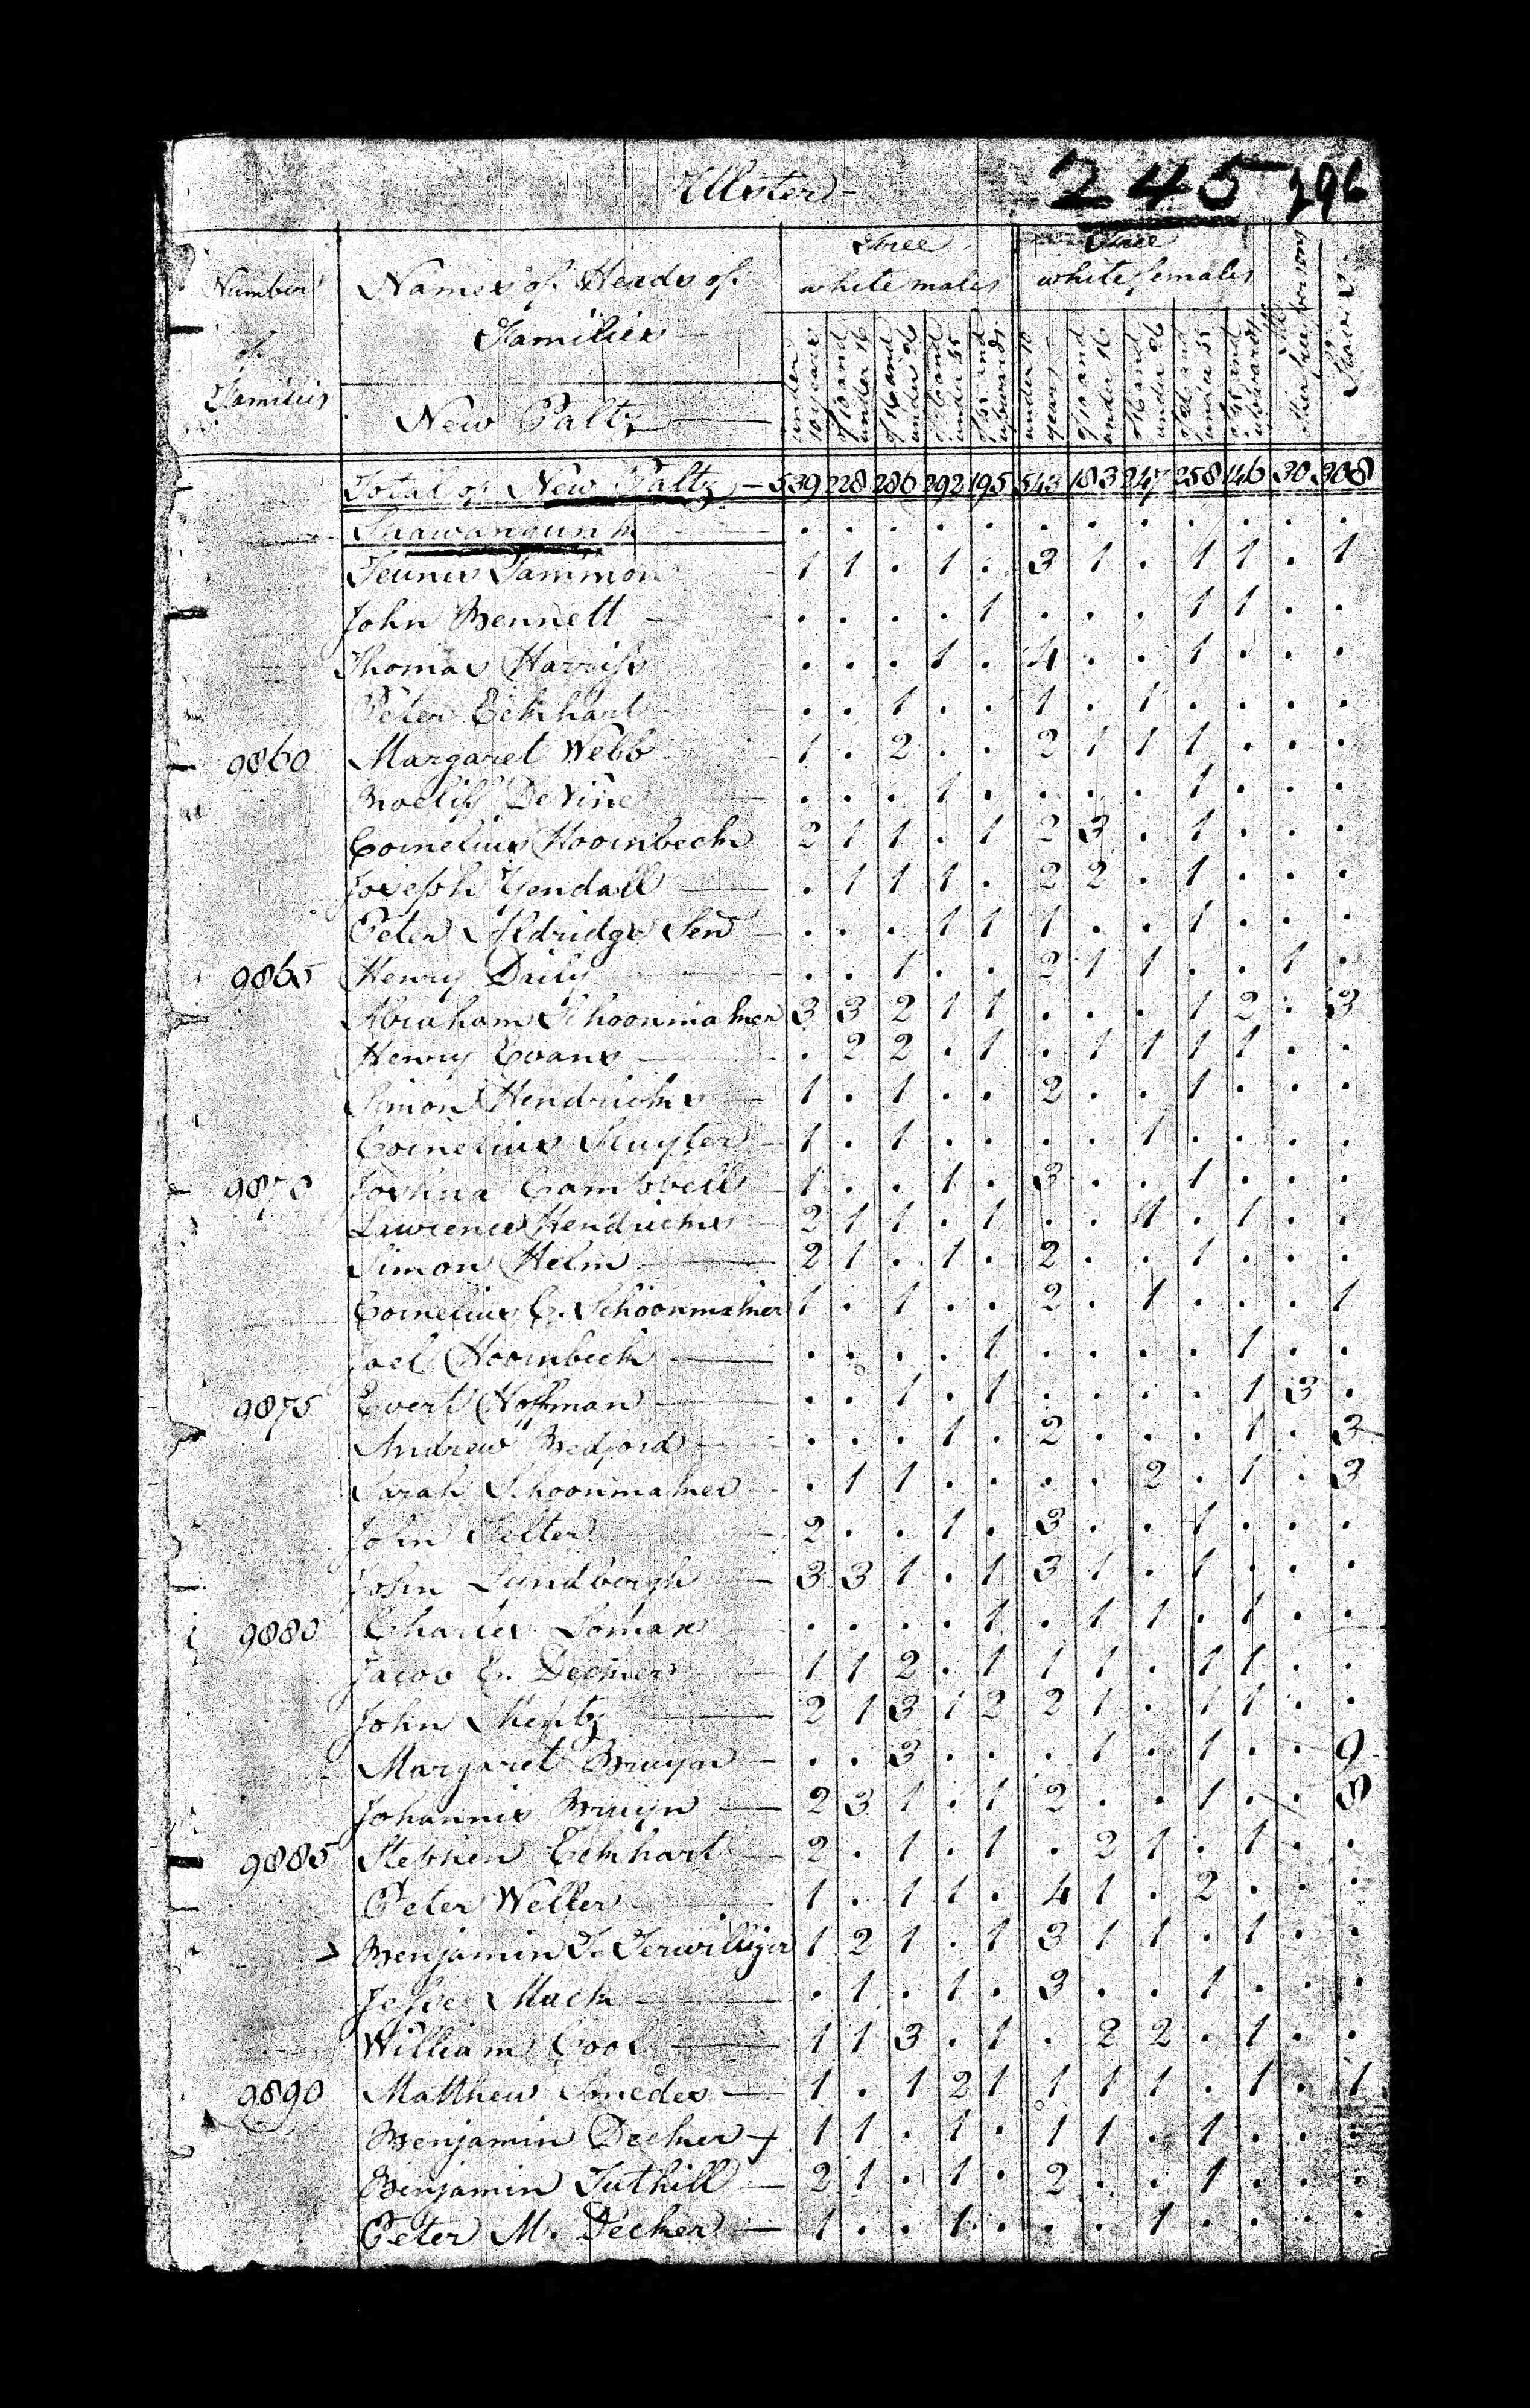 Ulster
245 296
Number of Families
Names of Heads of Families
New Paltz
Free white males
Free white females
under 10 years
of 10 and under 16
of 16 and under 26
of 26 and under 45
of 45 and upwards
under 10 years
of 10 and under 16
of 16 and under 26
of 26 and under 45
of 45 and upwards
All other free persons
Slaves
Total of New Paltz 539 228 286 292 195 543 183 247 258 146 30 308
Shawangunk . . . . . . . . . . . .
Teunis Tammon 1 1 . 1 . 3 1 . 1 1 . 1
John Bennett . . . . 1 . . . 1 1 . .
Thomas Harriss . . . 1 . 4 . . 1 . . .
Peter Eckhart . . 1 . . 1 . 1 . . . .
9860 Margaret Webb 1 . 2 . . 2 1 1 1 . . .
DeVine . . . 1 . . . . 1 . . .
Cornelius Hoornbeck 2 1 1 . 1 2 3 . 1 . . .
Joseph Yendall . 1 1 1 . 2 2 . 1 . . .
Peter Aldridge Sen . . . 1 1 1 . . 1 . . .
9865 Henry Daily . . 1 . . 2 1 1 . . 1 .
Abraham Schoonmaker 3 3 2 1 1 . . . 1 2 . 3
Henry Evans . 2 2 . 1 . 1 1 1 1 . .
Simon Hendricks 1 . 1 . . 2 . . 1 . . .
Cornelius Sluyter 1 . 1 . . . . 1 . . . .
9870 Joshua Campbell 1 . . 1 . 3 . . 1 . . .
Lawrence Hendricks 2 1 1 . 1 . . 1 . 1 . .
Simon Helm 2 1 . 1 . 2 . . 1 . . .
Cornelius C. Schoonmaker 1 . 1 . . 2 . 1 . . . 1
Joel Hoornbeck . . . . 1 . . . . 1 . .
9875 Evert Hoffman . . 1 . 1 . . . . 1 3 .
Andrew Bedford . . . 1 . 2 . . . 1 . 3
Sarah Schoonmaker . 1 1 . . . . 2 . 1 . 3
John Telter 2 . . 1 . 3 . . 1 . . .
John Lundbergh 3 3 1 . 1 3 1 . 1 . . .
9880 Charles Lomax . . . . 1 . 1 1 . 1 . .
Jacob E. Decker 1 1 2 . 1 1 1 . 1 1 . .
John Mentz 2 1 3 1 2 2 1 . 1 1 . .
Margaret Bruyn . . 3 . . . 1 . 1 . . 9
Johannis Bruyn 2 3 1 . 1 2 . . 1 . . 8
9885 Stephen Eckhart 2 . 1 . 1 . 2 1 . 1 . .
Peter Weller 1 . 1 1 . 4 1 . 2 . . .
Benjamin T. Terwilliger 1 2 1 . 1 3 1 1 . 1 . .
Jesse Mack . 1 . 1 . 3 . . 1 . . .
William Cool 1 1 3 . 1 . 2 2 . 1 . .
9890 Matthew Smedes 1 . 1 2 1 1 1 1 . 1 . 1
Benjamin Decker 1 1 . 1 . 1 1 . 1 . . .
Benjamin Tuthill 2 1 . 1 . 2 . . 1 . . .
Peter M. Decker 1 . . 1 . . . 1 . . . .